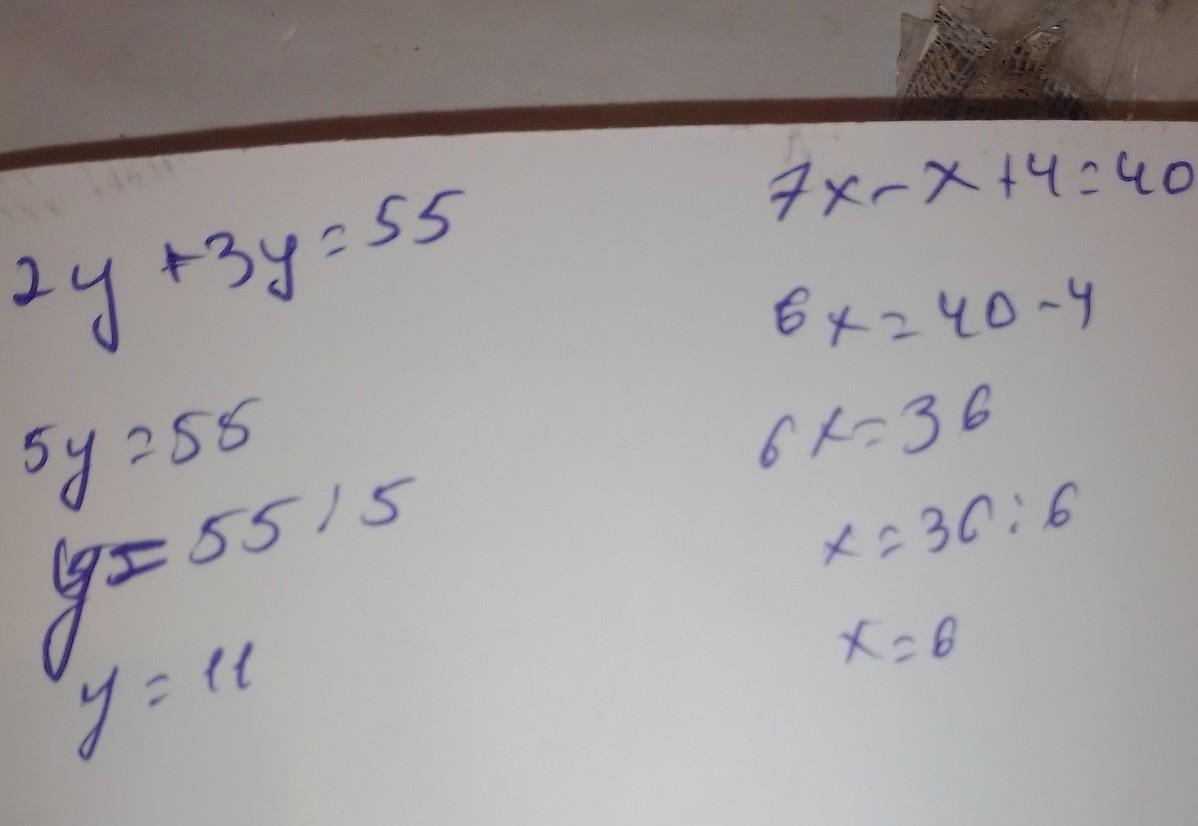 2y + 3y = 55
5y = 55
y = 55 : 5
y = 11
7x - x + 4 = 40
6x = 40 - 4
6x = 36
x = 36 : 6
x = 6